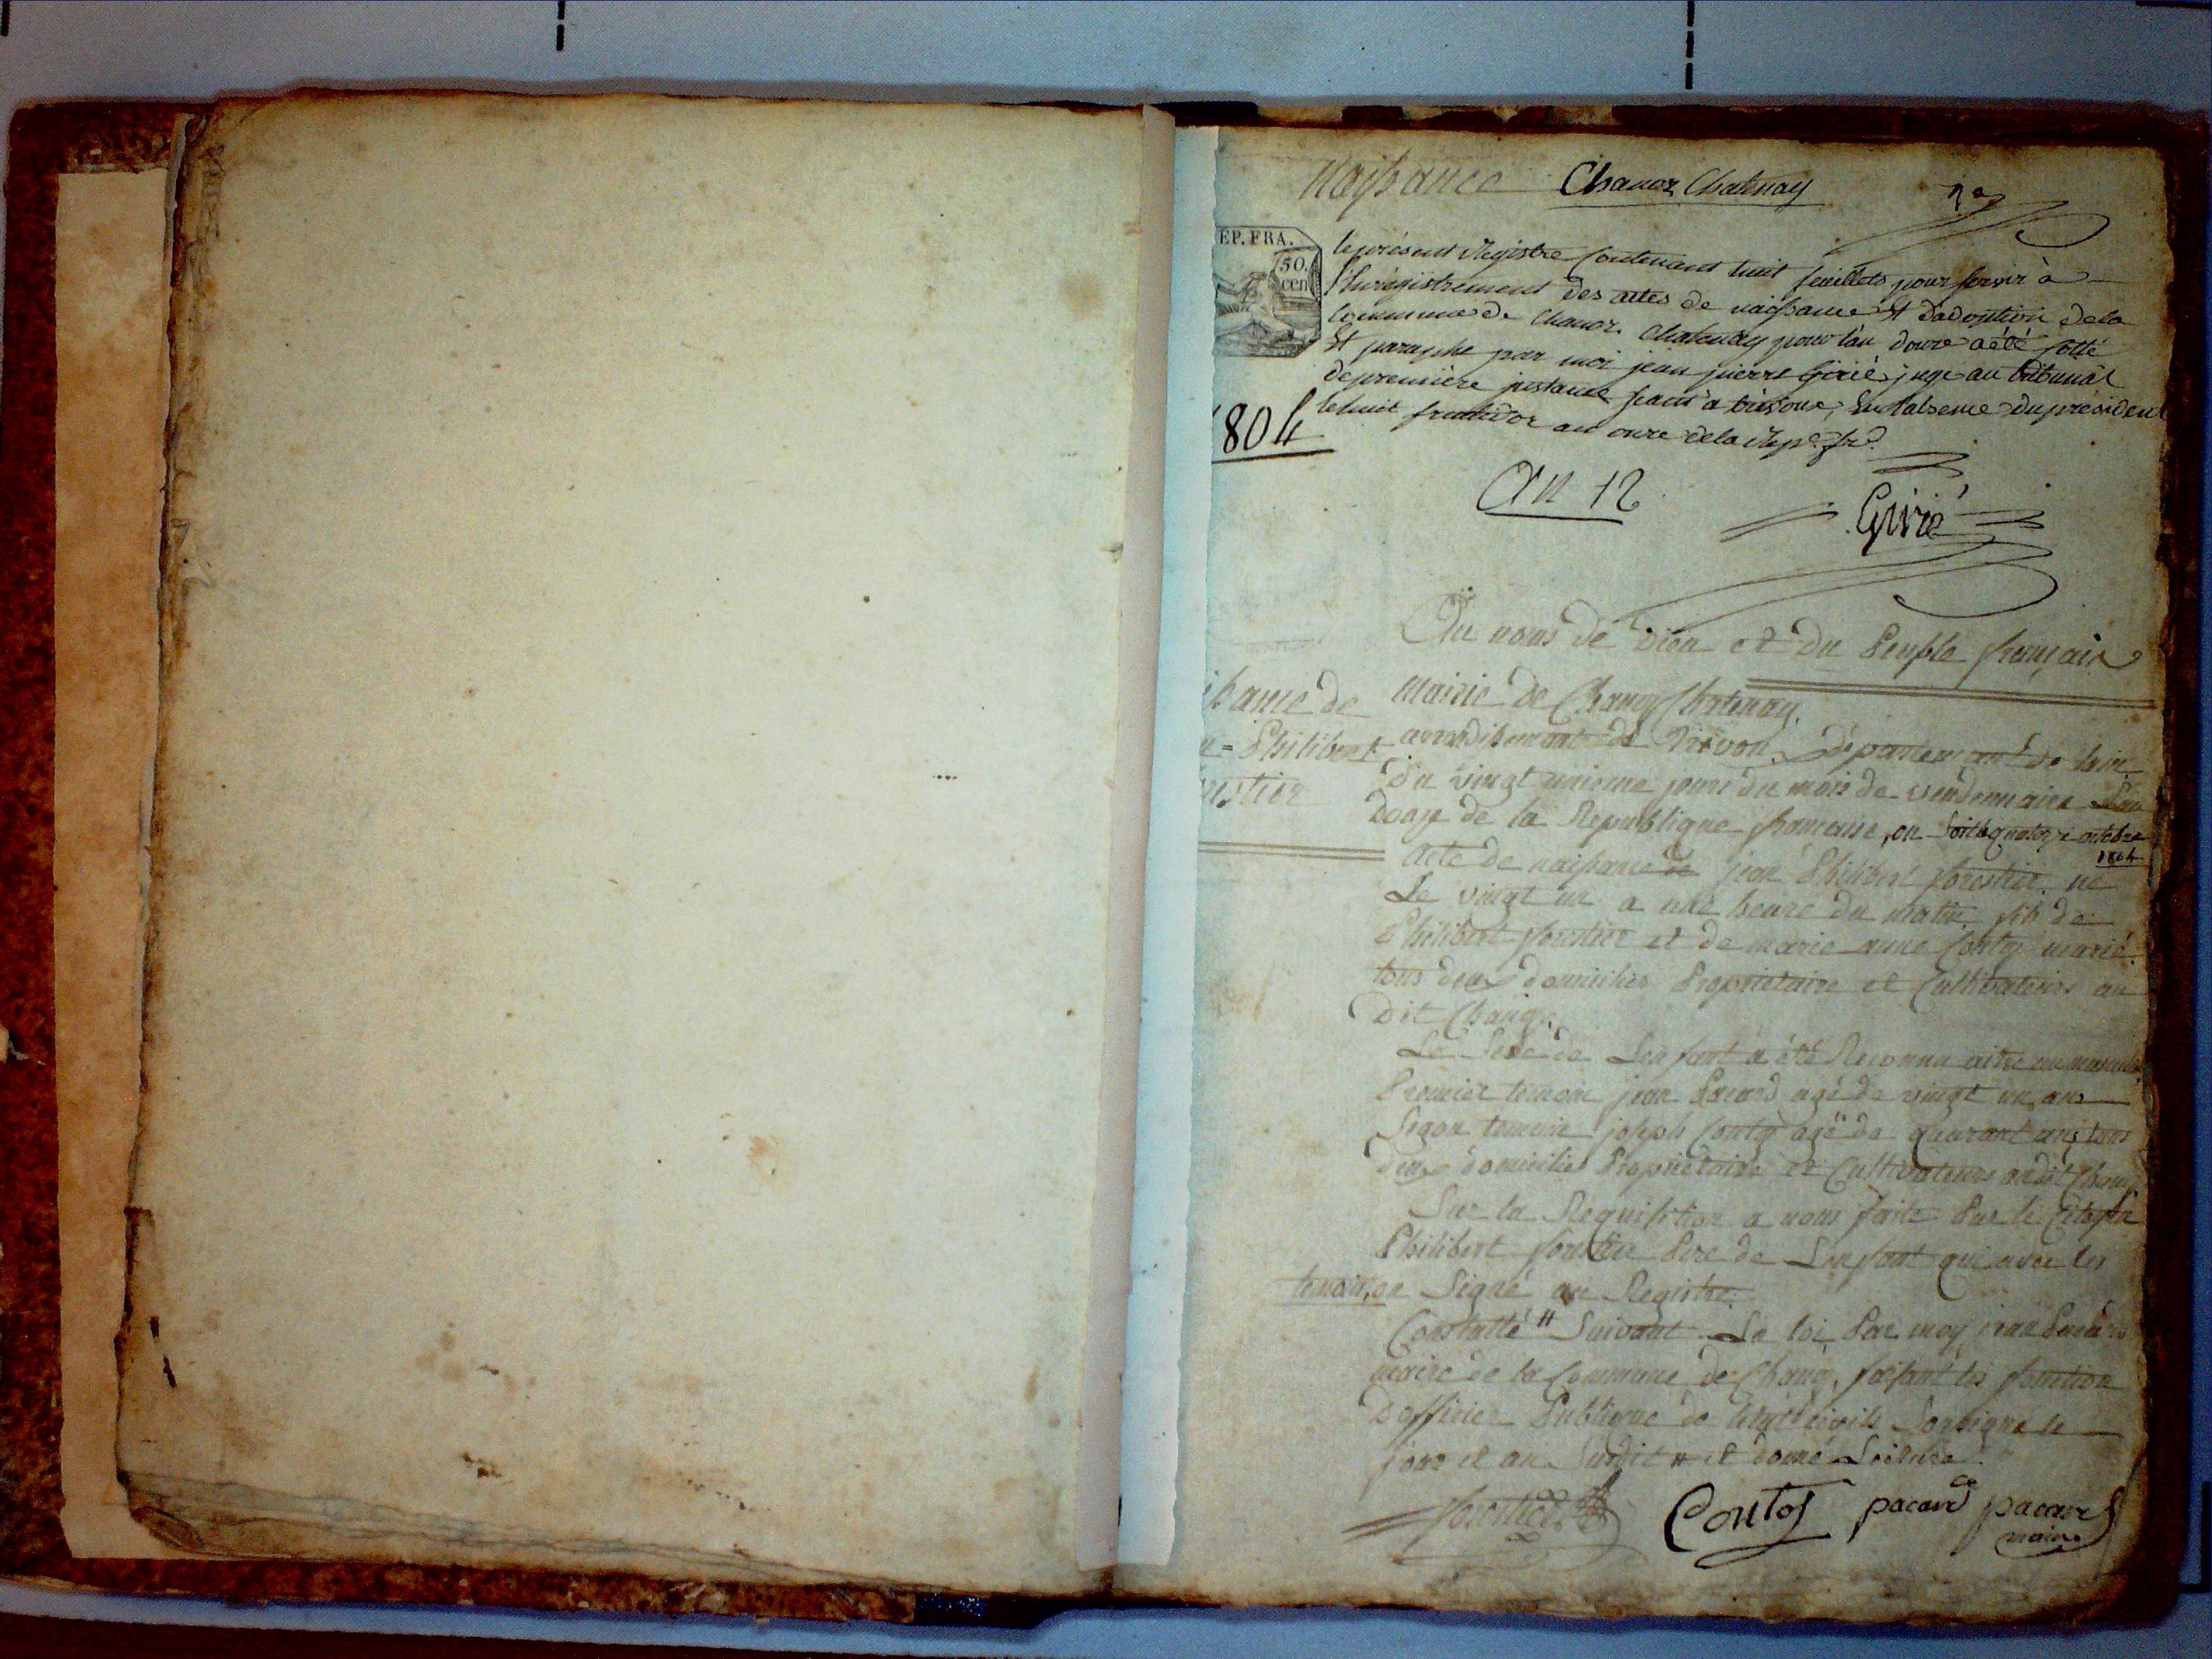 Naissance Chanoz Chatenay
EP. FRA.
50.
cen
le présent Registre Contenant huit feuillets pour servir à
l'Enrégistrement des actes de naissance Et d'adoption de la
Commune de Chanoz Chatenay pour l'an douze a été Cotté
Et paraphé par moi jean pierre Girié, juge au tribunal
de première instance séant a trévoux, En l'absence du président
le huit fructidor an onze de la Rep.e fr.e
1804
An 12
Girié
Au nons de Dieu et du Peuple français
Mairie de Chanoz Chatenay.
arrondissement de Trévoux Département de l'ain
Du vingt unieme jours du mois de vendemiaire l'an
douze de la Republique française, ou Soit le quatorze octobre
1804
ssance de
n = Philibert
restier
acte de naissance de jean Philibert forestier né
Le vingt un a une heure du matin fils de
Philibert forestier et de marie anne Contoz marié
tous deux domiciliés Propriétaire et Cultivateurs au
Dit Chanoz
Le Sexe de Lenfant a été Reconnu aitre au masculin
Premier temoin jean Pacard agé de vingt un ans
Segon temoin joseph Contoz agé de quarant ans tous
deux domicilié Propriétaire et Cultivateurs audit Chanoz
Sur la Requisition a nous faite Par le Citoyen
Philibert forestier Pere de Lenfant qui avec les
temoin, on Signé au Registre.
Constatté # Suivant La loi Par moy jean Pacard
maire de la Commune de Chanoz faisant les fonction
Dofficier Publique de l'état civile Sousigné le
jour et an Susdit # et donné Lecture
forestier Contoz pacard pacard
maire